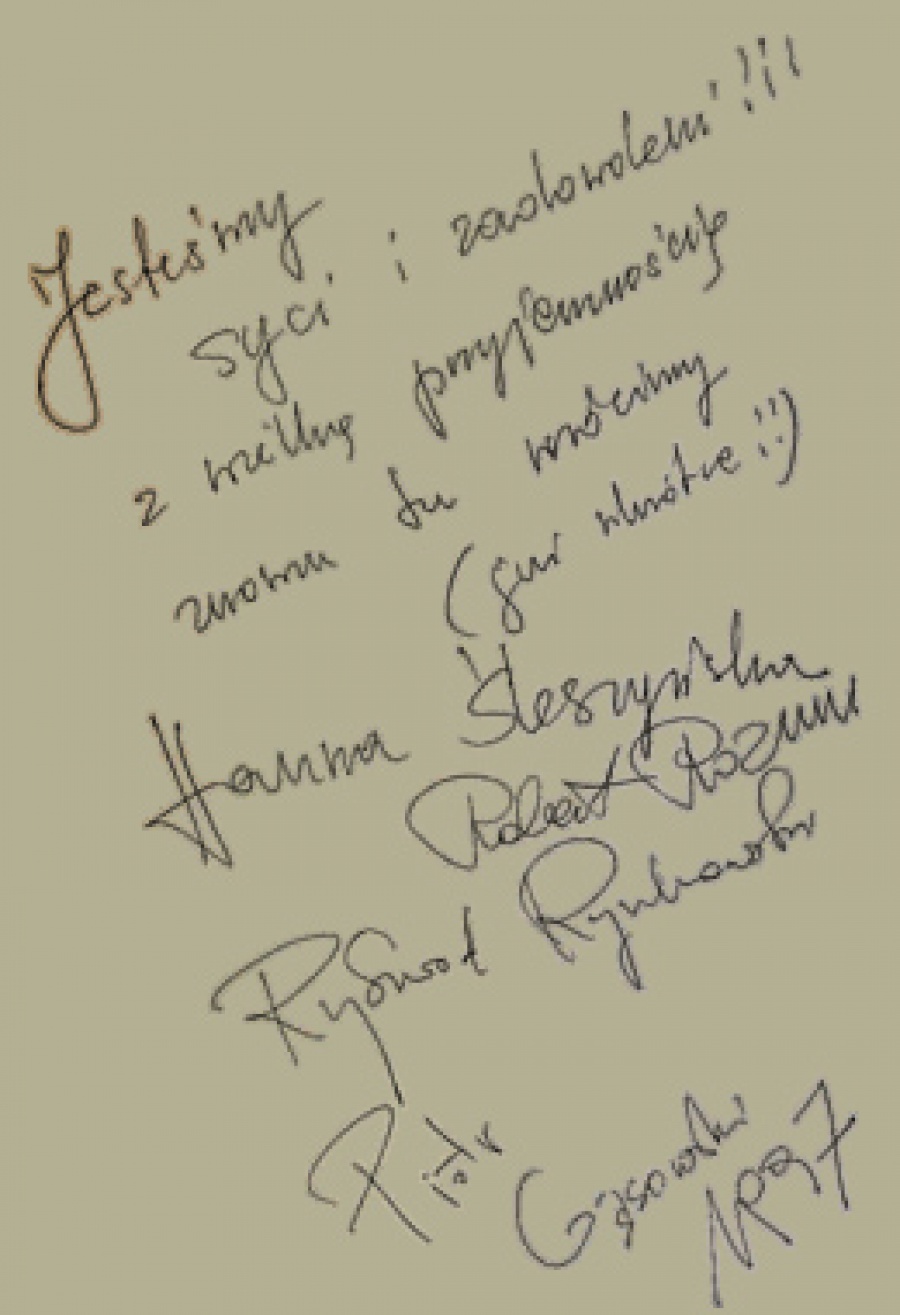 Jesteśmy
syci i zadowoleni!!!
z wielką przyjemnością
znowu tu wrócimy
(już wkrótce!!)
Hanna Śleszyńska
Robert Rozmus
Ryszard Rynkowski
Piotr Gąsowski